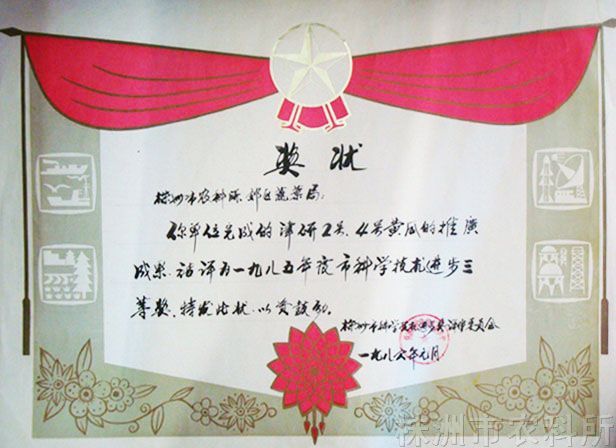 奖状
株洲市农科所、郊区蔬菜局:
你单位完成的津研2号、4号黄瓜的推广
成果,被评为一九八五年度市科学技术进步三
等奖,特发此状,以资鼓励。
株洲市科学技术进步奖评审委员会
一九八六年元月
株洲市农科所